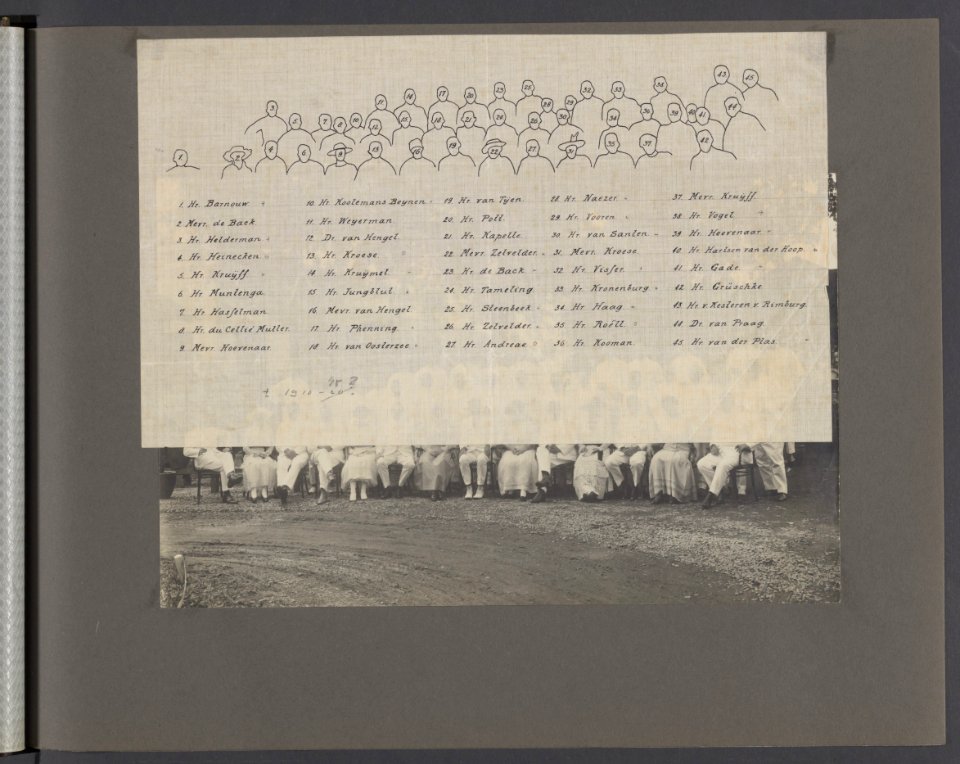 1. Hr. Barnouw
2 Mevr. de Back
3 Hr. Helderman
4 Hr. Heinecken
5 Hr. Kruÿff
6 Hr Muntenga
7. Hr. Hasselman
8. Hr. du Cellié Muller.
9. Mevr. Hoevenaar
10 Hr. Koolemans Beynen
11. Hr. Weyerman
12. Dr. van Hengel
13. Hr. Kroese.
14 Hr. Kruÿmel
15 Hr. Jungblut
16 Mevr. van Hengel
17 Hr. Phenning
18 Hr. van Oosterzee
19 Hr. van Tyen
20. Hr. Poll
21 Hr. Kapelle.
22 Mevr. Zelvelder.
23 Hr. de Back
24. Hr. Tameling.
25. Hr. Steenbeek
26 Hr. Zelvelder.
27. Hr. Andreae
28 Hr. Naezer
29 Hr. Vooren
30 Hr. van Santen
31. Mevr. Kroese
32 Hr. Visser
33 Hr. Kronenburg
34 Hr Haag
35 Hr. Roëll
36 Hr. Kooman.
37 Mevr. Kruÿff
38 Hr. Vogel
39 Hr. Hoevenaar
40 Hr. Harlsen van der Hoop
41 Hr. Gade.
42 Hr. Grüschke
43 Hr. v. Kesteren v. Rimburg.
44 Dr. van Praag.
45 Hr. van der Plas.